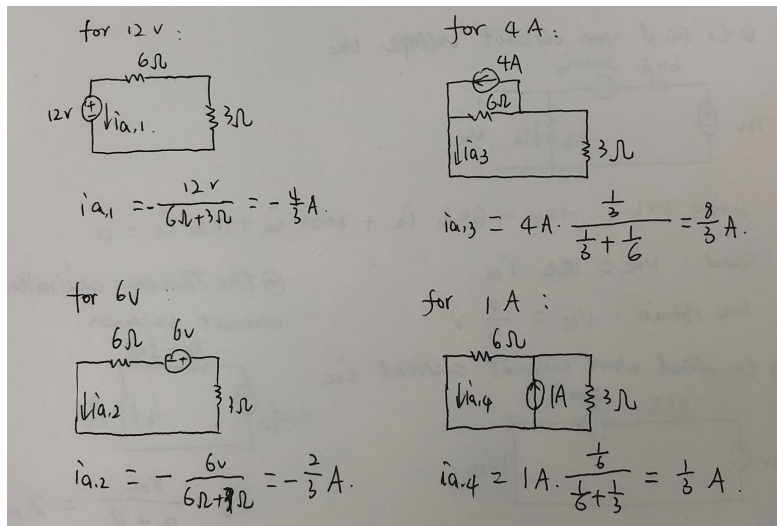 for 12v:
6Ω
12v
ia,1
3Ω
ia,1 = - 12v / (6Ω+3Ω) = - 4/3 A.
for 6v:
6Ω
6v
ia,2
3Ω
ia,2 = - 6v / (6Ω+3Ω) = - 2/3 A.
for 4A:
4A
6Ω
ia,3
3Ω
ia,3 = 4A · (1/3) / (1/3 + 1/6) = 8/3 A.
for 1A:
6Ω
ia,4
1A
3Ω
ia,4 = 1A · (1/6) / (1/6 + 1/3) = 1/3 A.